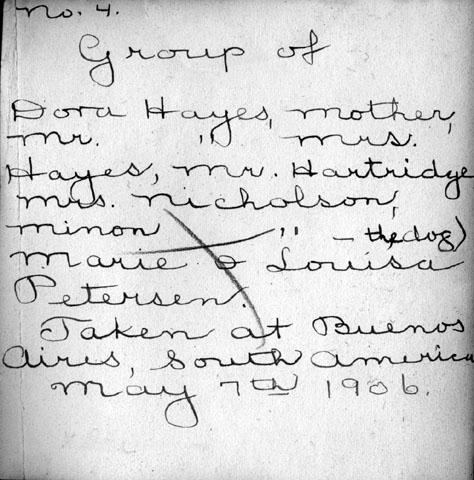 no. 4.
Group of
Dora Hayes, mother,
mr. " mrs.
Hayes, mr. Hartridge
mrs. nicholson,
minon " - the dog)
Marie & Louisa
Petersen.
Taken at Buenos
Aires, South America
may 7th 1906.